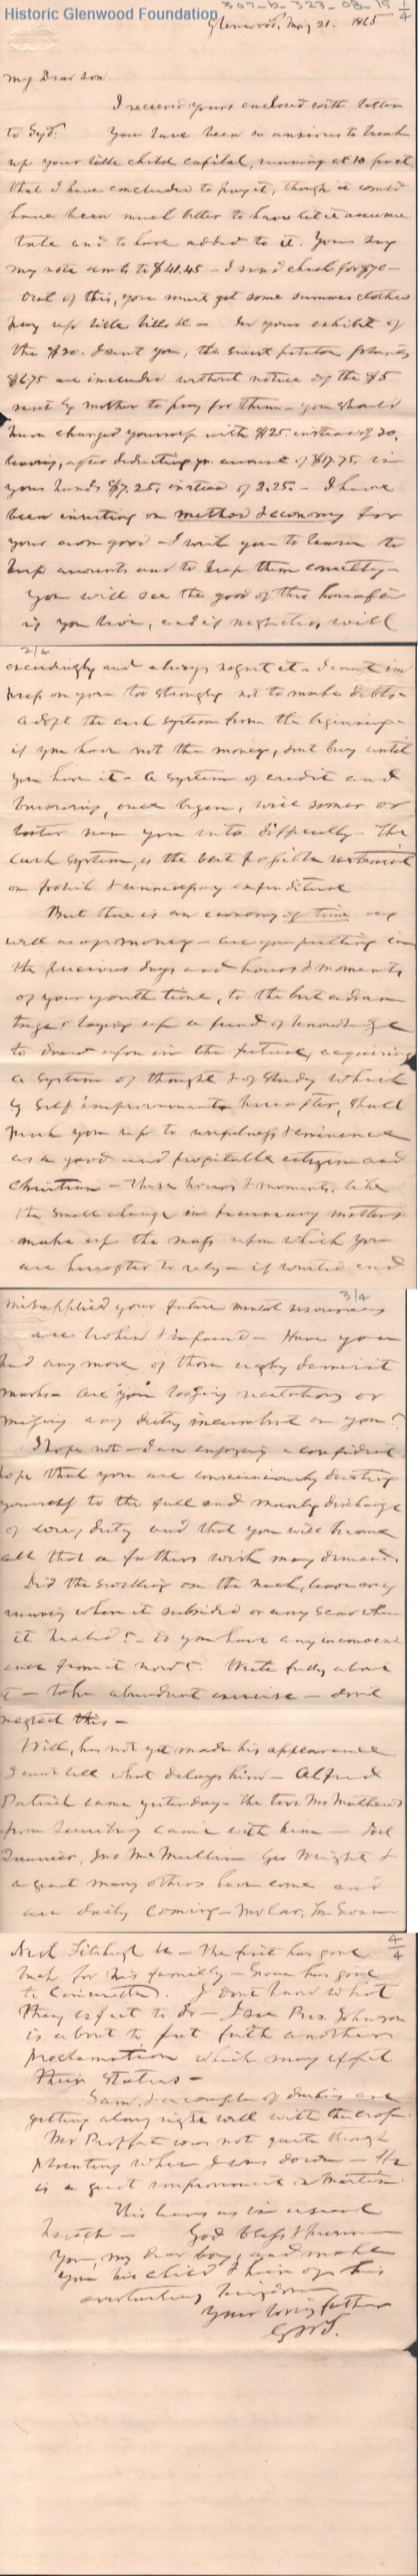 Historic Glenwood Foundation
307-b-323-08-19 1/4
Glenwood, May 21. 1865
My Dear son.
I received yours enclosed with letter
to Syd. You have been so anxious to break
up your little child capital, running at 10 pr ct,
that I have concluded to pay it, though it would
have been much better to have let it accumu
late and to have added to it. You say
my note amts to $41.45 - I send check for $70-
Out of this, you must get some summer clothes
pay up little bills &c - In your exhibit of
the $20. I sent you, the sweet potatoe
$6.75 are included without notice of the $5
sent by mother to pay for them - you should
have charged yourself with $25. instead of 20,
leaving, after deducting yr. amount of $17.75, in
your hands $7.25, instead of 2.25. - I have
been insisting on method & economy for
your own good - I wish you to learn to
keep amounts and to keep them correctly -
You will see the good of this hereafter
if you live, and if neglected will
2/4
exceedingly and always regret it - I cannot im
press on you too strongly not to make debts -
adopt the cash system from the beginning -
if you have not the money, dont buy until
you have it - A system of credit and
borrowing, once begun, will sooner or
later run you into difficulty - The
cash system, is the best possible restraint
on foolish & unnecessary expenditure
But there is an economy of time as
well as of money - are you putting in
the precious days and hours & moments
of your youth time, to the best advan
tage? laying up a fund of knowledge
to draw upon in the future, acquiring
a system of thought & of study which
by self improvement hereafter, shall
push you up to usefulness & eminence
as a good and profitable citizen and
Christian - These hours & moments, like
the small change in pecuniary matters
make up the mass upon which you
are hereafter to rely - if wasted and
3/4
misapplied your future mental resources
are broken & impaired - Have you
had any more of those ugly demerit
marks - are you losing recitations or
missing any duty incumbent on you?
I hope not - I am enjoying a confident
hope that you are conscientiously devoting
yourself to the full and manly discharge
of every duty and that you will become
all that a fathers wish may demand.
Did the swelling on the neck, leave any
running when it subsided or any scar when
it healed? - do you have any inconveni
ence from it now? Write fully about
it - take abundant exercise - dont
neglect this -
Will, has not yet made his appearance
I cant tell what delays him - Alfred
came yesterday - the two Mr Mathews
from came with him - Joel
Jno McMullin Geo Wright &
a great many others have come and
are daily coming -
4/4
Fitzhugh &c - The first has gone
back for his family - has gone
to Cincinnati. I dont know what
they expect to do - I see Pres. Johnson
is about to put forth another
proclamation which may affect
their status -
Sam, & a couple of are
getting along right well with the crop.
Mr Proffet was not quite through
planting when I was down - He
is a great improvement on Martin
This leaves us in usual
health - God bless & preserve
you, my dear boy, and make
you his child & heir of his
everlasting kingdom
Your loving father